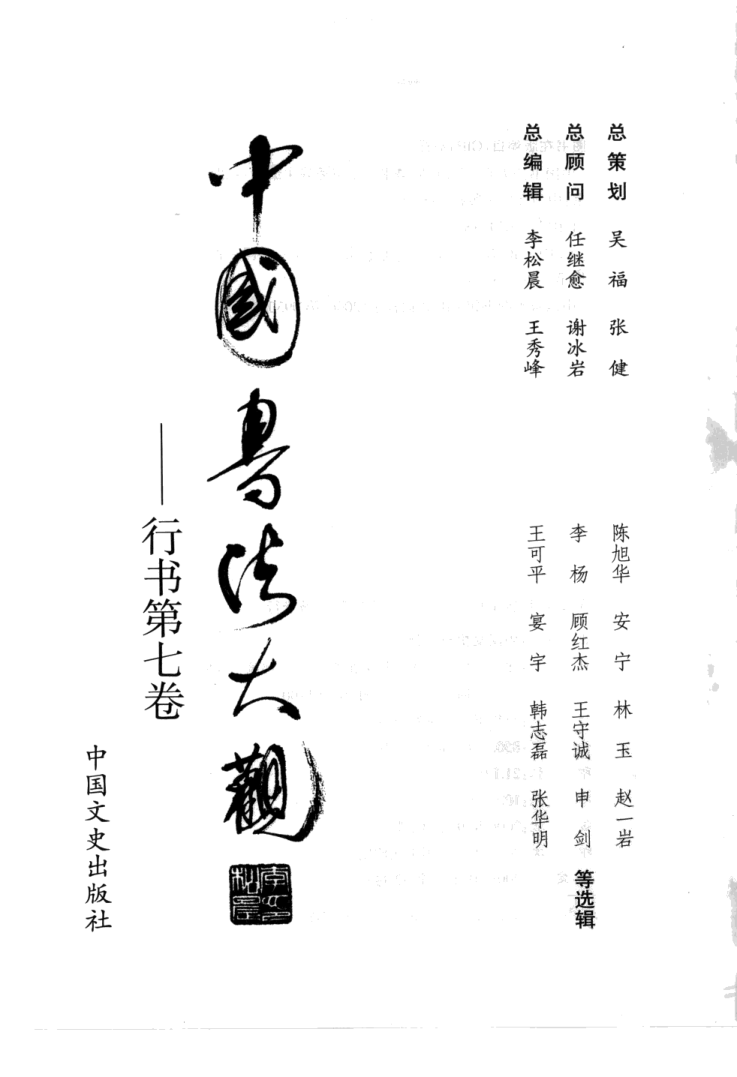 总策划 吴福 张健
总顾问 任继愈 谢冰岩
总编辑 李松晨 王秀峰
陈旭华 安宁 林玉 赵一岩
李杨 顾红杰 王守诚 申剑 等选辑
王可平 宴宇 韩志磊 张华明
中國書法大觀
——行书第七卷
中国文史出版社